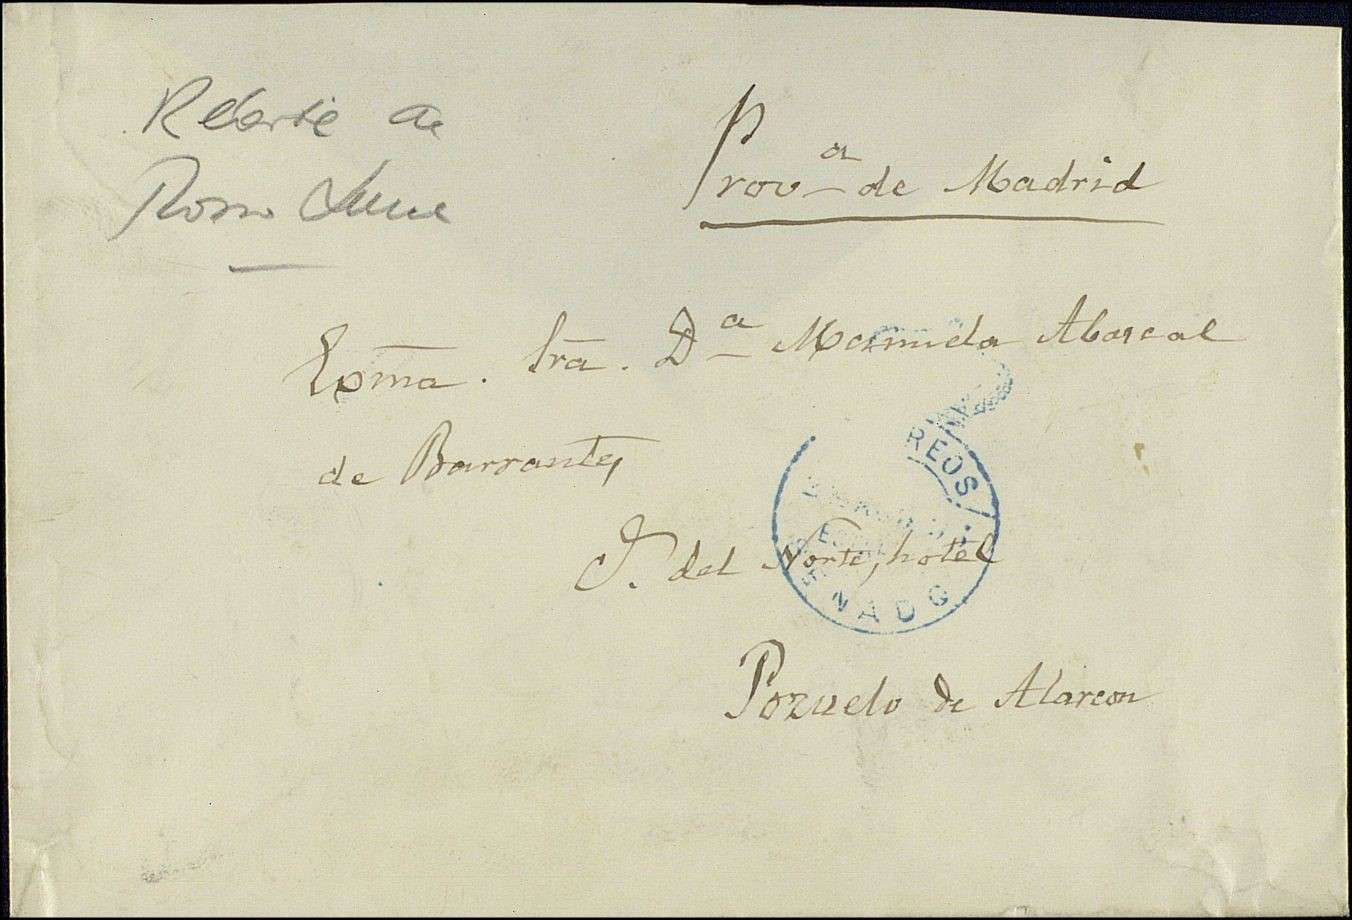 Prov.ª de Madrid
Exma. Sra. D.ª Manuela Abascal
de Barrantes
C. del Norte, hotel
Pozuelo de Alarcon
REOS
SENADO